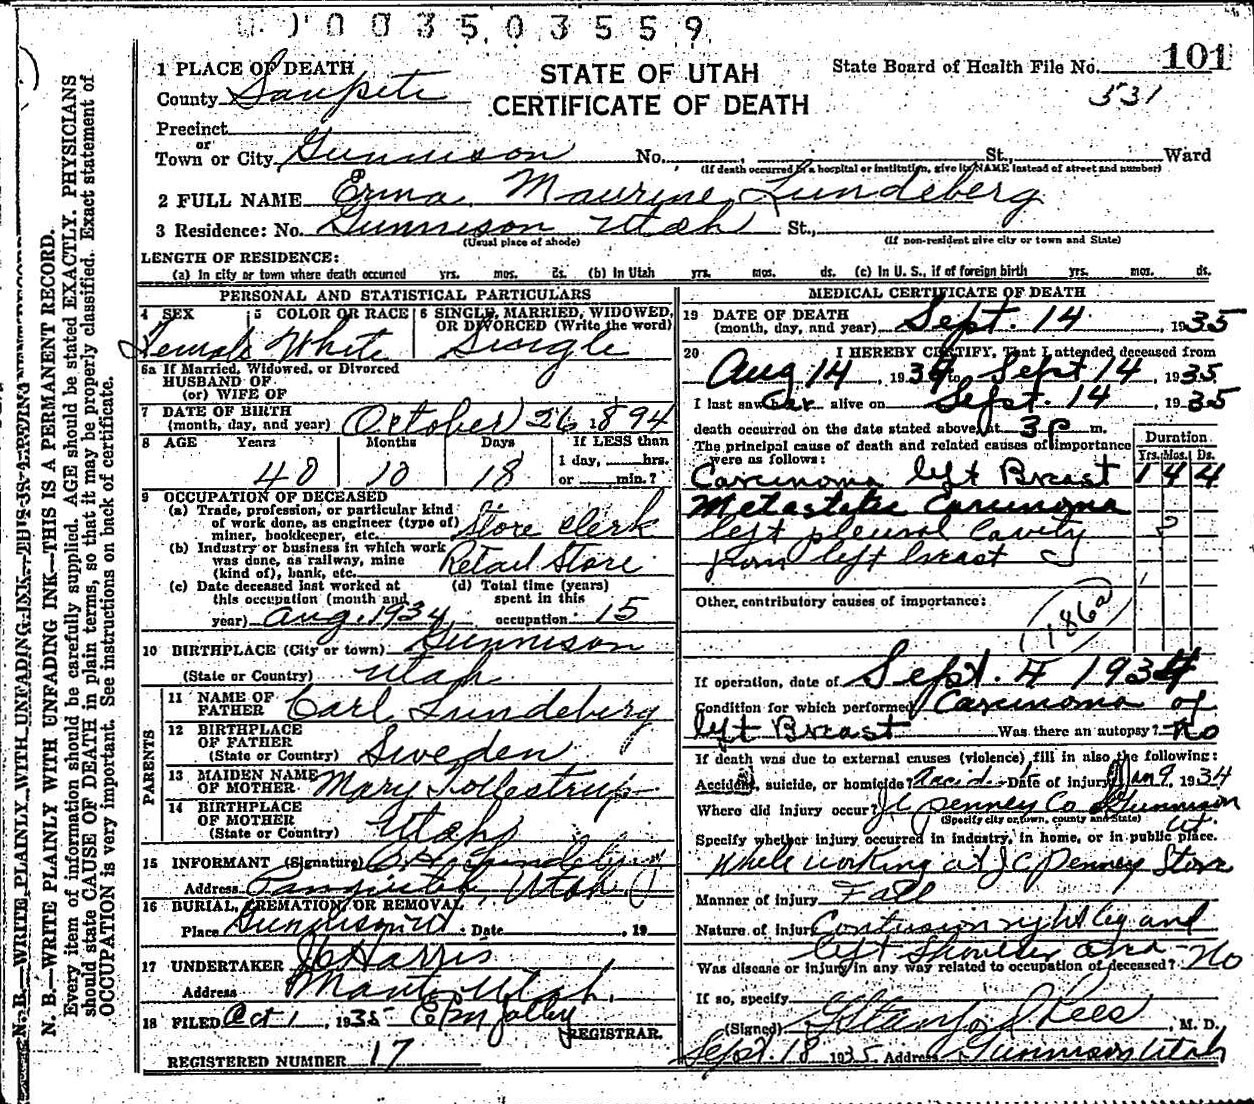 0003503559
101
1 PLACE OF DEATH
STATE OF UTAH
CERTIFICATE OF DEATH
State Board of Health File No.
531
County Sanpete
Precinct
or
Town or City Gunnison No. , St., Ward
(If death occurred in a hospital or institution, give its NAME instead of street and number)
2 FULL NAME Erma Maurine Lundeberg
3 Residence: No. Gunnison Utah St.,
(Usual place of abode) (If non-resident give city or town and State)
LENGTH OF RESIDENCE:
(a) In city or town where death occurred yrs. mos. ds. (b) In Utah yrs. mos. ds. (c) In U. S., if of foreign birth yrs. mos. ds.
PERSONAL AND STATISTICAL PARTICULARS
4 SEX 5 COLOR OR RACE 6 SINGLE, MARRIED, WIDOWED,
OR DIVORCED (Write the word)
Female White Single
6a If Married, Widowed, or Divorced
HUSBAND OF
(or) WIFE OF
7 DATE OF BIRTH
(month, day, and year) October 26 1894
8 AGE Years Months Days If LESS than
1 day, hrs.
40 10 18 or min.?
9 OCCUPATION OF DECEASED
(a) Trade, profession, or particular kind
of work done, as engineer (type of)
miner, bookkeeper, etc. Store Clerk
(b) Industry or business in which work
was done, as railway, mine
(kind of), bank, etc. Retail Store
(c) Date deceased last worked at (d) Total time (years)
this occupation (month and spent in this
year) Aug. 1934 occupation 15
10 BIRTHPLACE (City or town) Gunnison
(State or Country) Utah
PARENTS
11 NAME OF
FATHER Carl Lundeberg
12 BIRTHPLACE
OF FATHER
(State or Country) Sweden
13 MAIDEN NAME
OF MOTHER Mary Tollestrup
14 BIRTHPLACE
OF MOTHER
(State or Country) Utah
15 INFORMANT (Signature) C. H. Lundeberg
Address Panguitch, Utah
16 BURIAL, CREMATION, OR REMOVAL
Place Gunnison Date , 19
17 UNDERTAKER Harris
Address Manti Utah.
18 FILED Oct 1, 1935
REGISTRAR.
REGISTERED NUMBER 17
MEDICAL CERTIFICATE OF DEATH
19 DATE OF DEATH
(month, day, and year) Sept. 14 , 1935
20 I HEREBY CERTIFY, That I attended deceased from
Aug 14 , 1934 to Sept 14 , 1935
I last saw her alive on Sept. 14 , 1935
death occurred on the date stated above, at 3 p m.
The principal cause of death and related causes of importance
were as follows:
Duration
Yrs. Mos. Ds.
Carcinoma left Breast 1 4 4
Metastatic Carcinoma
left pleural Cavity ?
from left breast
Other contributory causes of importance:
186a
If operation, date of Sept. 4 1934
Condition for which performed Carcinoma of
left Breast Was there an autopsy? No
If death was due to external causes (violence) fill in also the following:
Accident, suicide, or homicide? Accid. Date of injury Jan 9, 1934
Where did injury occur? J C penney Co Gunnison
(Specify city or town, county and State) Ut.
Specify whether injury occurred in industry, in home, or in public place.
While working at J C Penney Store
Manner of injury Fall
Nature of injury Contusion right leg and
left Shoulder area
Was disease or injury in any way related to occupation of deceased? No
If so, specify
(Signed) Rees, M. D.
Sept. 18 1935 Address Gunnison Utah
N. B.—WRITE PLAINLY WITH UNFADING INK—THIS IS A PERMANENT RECORD.
N. B.—WRITE PLAINLY WITH UNFADING INK—THIS IS A PERMANENT RECORD.
Every item of information should be carefully supplied. AGE should be stated EXACTLY. PHYSICIANS
should state CAUSE OF DEATH in plain terms, so that it may be properly classified. Exact statement of
OCCUPATION is very important. See instructions on back of certificate.